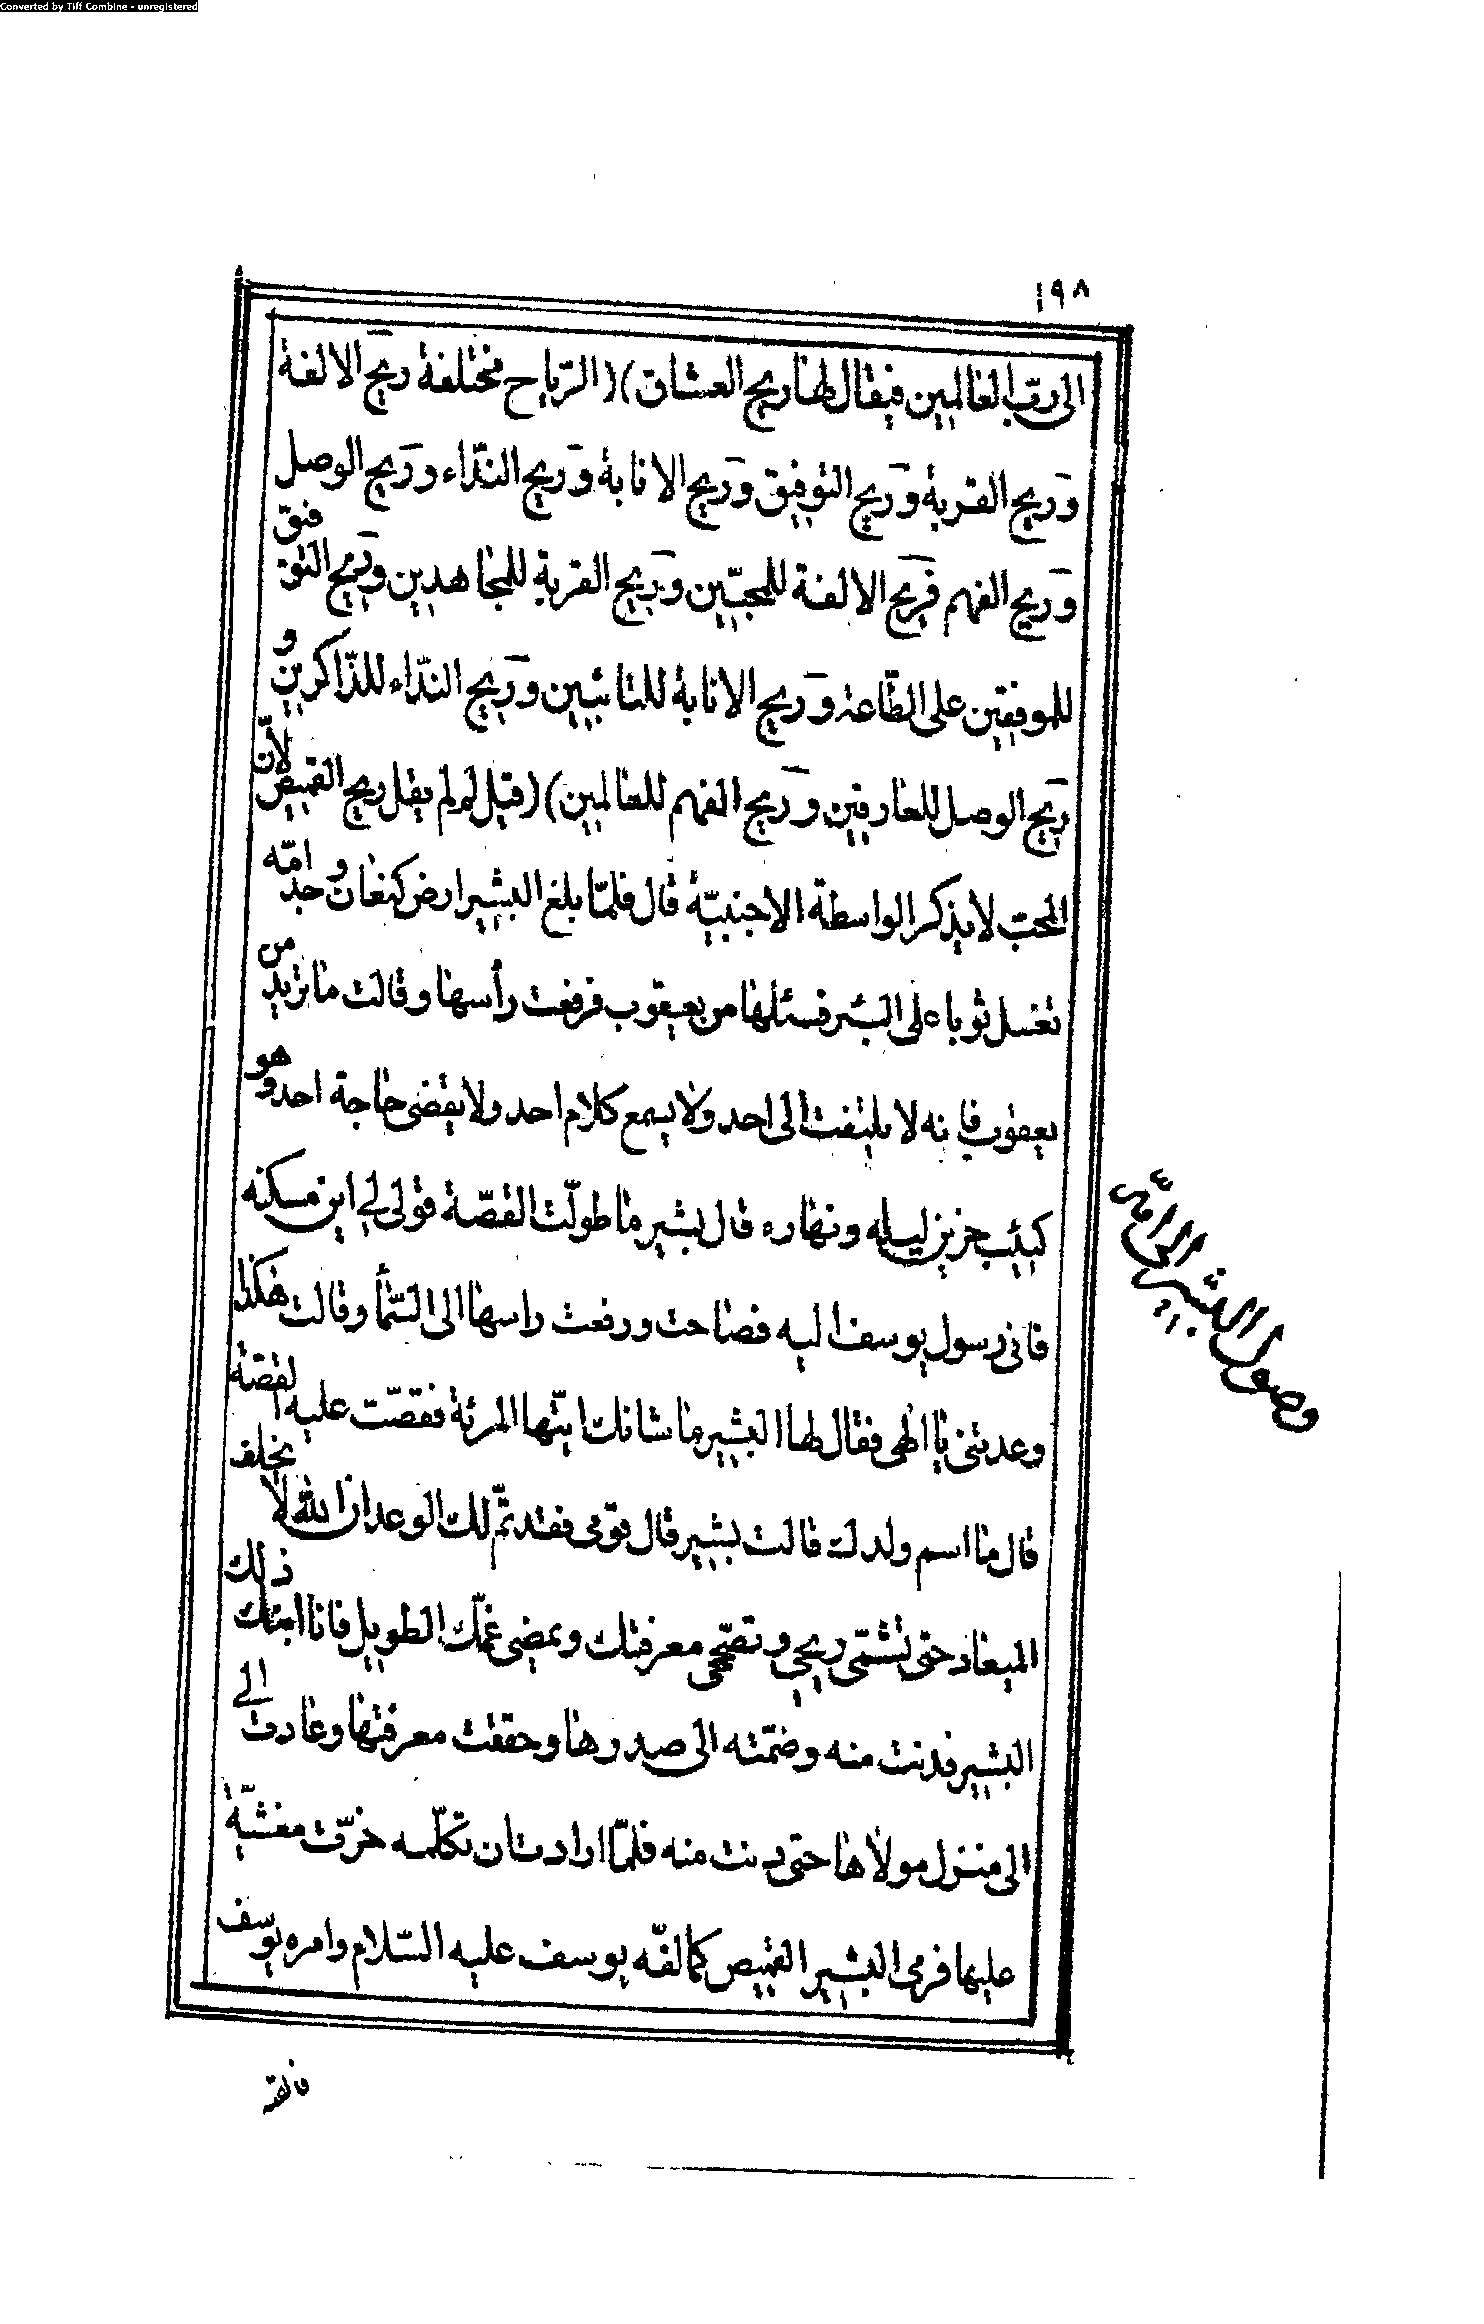 Converted by Tiff Combine - unregistered
١٩٨
الى رب العالمين فيقال لها ريح العشاق)(الرّياح مختلفة ريح الالفة
وريح القربة وريح التوفيق وريح الانابة وريح النداء وريح الوصل
وريح الفهم فريح الالفة للمحبّين وريح القربة للمجاهدين وريح التوفيق
للموفقين على الطّاعة وريح الانابة للتائبين وريح النّداء للذّاكرين و
ريح الوصل للعارفين وريح الفهم للعالمين)(قيل لم لم يقل ريح القميص لأنّ
المحب لا يذكر الواسطة الاجنبيّة قال فلمّا بلغ البشير ارض كنعان وجد امّه
تغسل ثوبا على البئر فسئلها من يعقوب فرفعت رأسها وقالت ما تريد من
يعقوب فانه لا يلتفت الى احد ولا يسمع كلام احد ولا يقضى حاجة احد وهو
كئيب حزين ليله ونهاره قال بشير ما طولّت القصّة قولى لى اين مسكنه
فانى رسول يوسف اليه فصاحت ورفعت راسها الى السّماء وقالت هكذا
وعدتنى يا الهى فقال لها البشير ما شانك ايتّها المرئة فقصّت عليه القصّة
قال ما اسم ولدك قالت بشير قال قومى فقد تمّ لك الوعد ان الله لا يخلف
الميعاد حتى تشمّى ريحى وتصحّى معرفتك ويمضى غمّك الطويل فانا ابنك ذلك
البشير فدنت منه وضمّته الى صدرها وحققت معرفتها وعادت الى
الى منزل مولاها حتى دنت منه فلمّا ارادت ان تكلّمه خرّت مغشيّة
عليها فرمى البشير القميص كما لفّه يوسف عليه السّلام وامره يوسف
وصول البشير الى امّه
فالقه